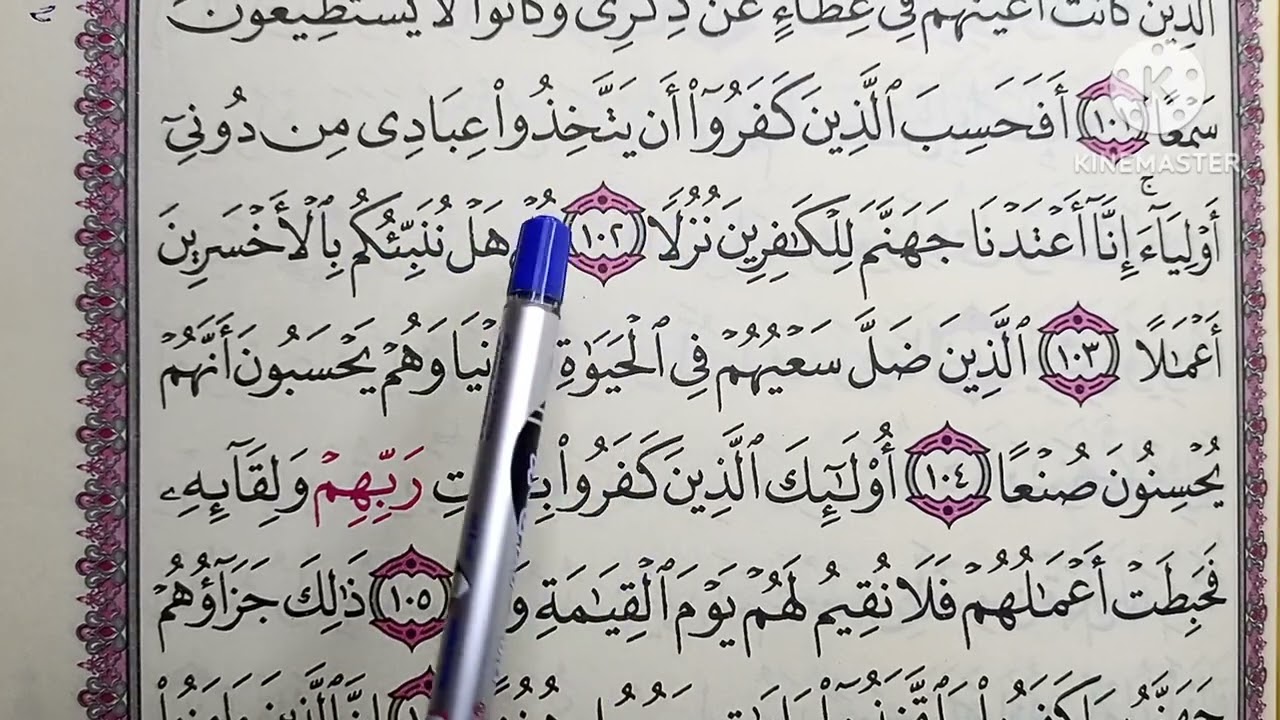 الَّذِينَ كَانَتْ أَعْيُنُهُمْ فِي غِطَآءٍ عَن ذِكْرِى وَكَانُوا۟ لَا يَسْتَطِيعُونَ
سَمْعًا ١٠١ أَفَحَسِبَ ٱلَّذِينَ كَفَرُوٓا۟ أَن يَتَّخِذُوا۟ عِبَادِى مِن دُونِىٓ
أَوْلِيَآءَ ۚ إِنَّآ أَعْتَدْنَا جَهَنَّمَ لِلْكَٰفِرِينَ نُزُلًا ١٠٢ هَلْ نُنَبِّئُكُم بِٱلْأَخْسَرِينَ
أَعْمَٰلًا ١٠٣ ٱلَّذِينَ ضَلَّ سَعْيُهُمْ فِى ٱلْحَيَوٰةِ وَهُمْ يَحْسَبُونَ أَنَّهُمْ
يُحْسِنُونَ صُنْعًا ١٠٤ أُو۟لَٰٓئِكَ ٱلَّذِينَ كَفَرُوا۟ رَبِّهِمْ وَلِقَآئِهِۦ
فَحَبِطَتْ أَعْمَٰلُهُمْ فَلَا نُقِيمُ لَهُمْ يَوْمَ ٱلْقِيَٰمَةِ ١٠٥ ذَٰلِكَ جَزَآؤُهُمْ
KINEMASTER